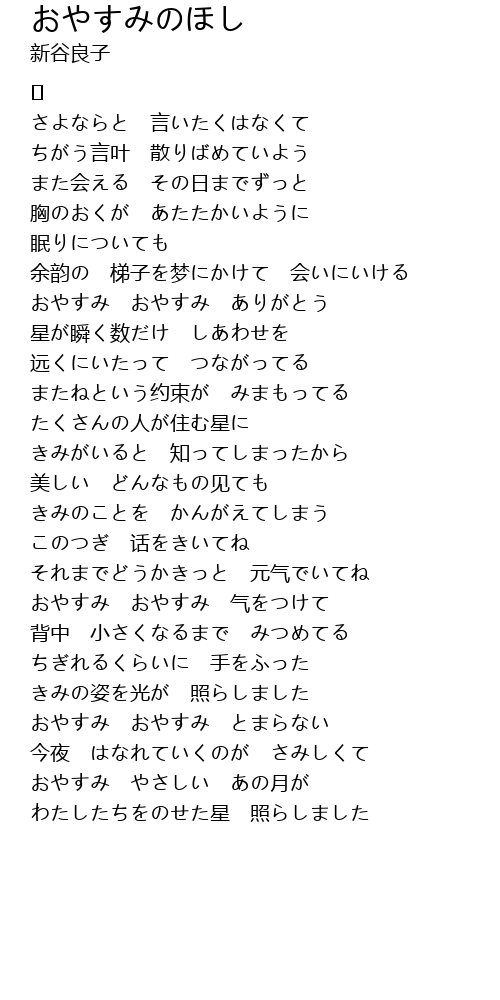 おやすみのほし
新谷良子
さよならと　言いたくはなくて
ちがう言叶　散りばめていよう
また会える　その日までずっと
胸のおくが　あたたかいように
眠りについても
余韵の　梯子を梦にかけて　会いにいける
おやすみ　おやすみ　ありがとう
星が瞬く数だけ　しあわせを
远くにいたって　つながってる
またねという约束が　みまもってる
たくさんの人が住む星に
きみがいると　知ってしまったから
美しい　どんなもの见ても
きみのことを　かんがえてしまう
このつぎ　话をきいてね
それまでどうかきっと　元气でいてね
おやすみ　おやすみ　气をつけて
背中　小さくなるまで　みつめてる
ちぎれるくらいに　手をふった
きみの姿を光が　照らしました
おやすみ　おやすみ　とまらない
今夜　はなれていくのが　さみしくて
おやすみ　やさしい　あの月が
わたしたちをのせた星　照らしました